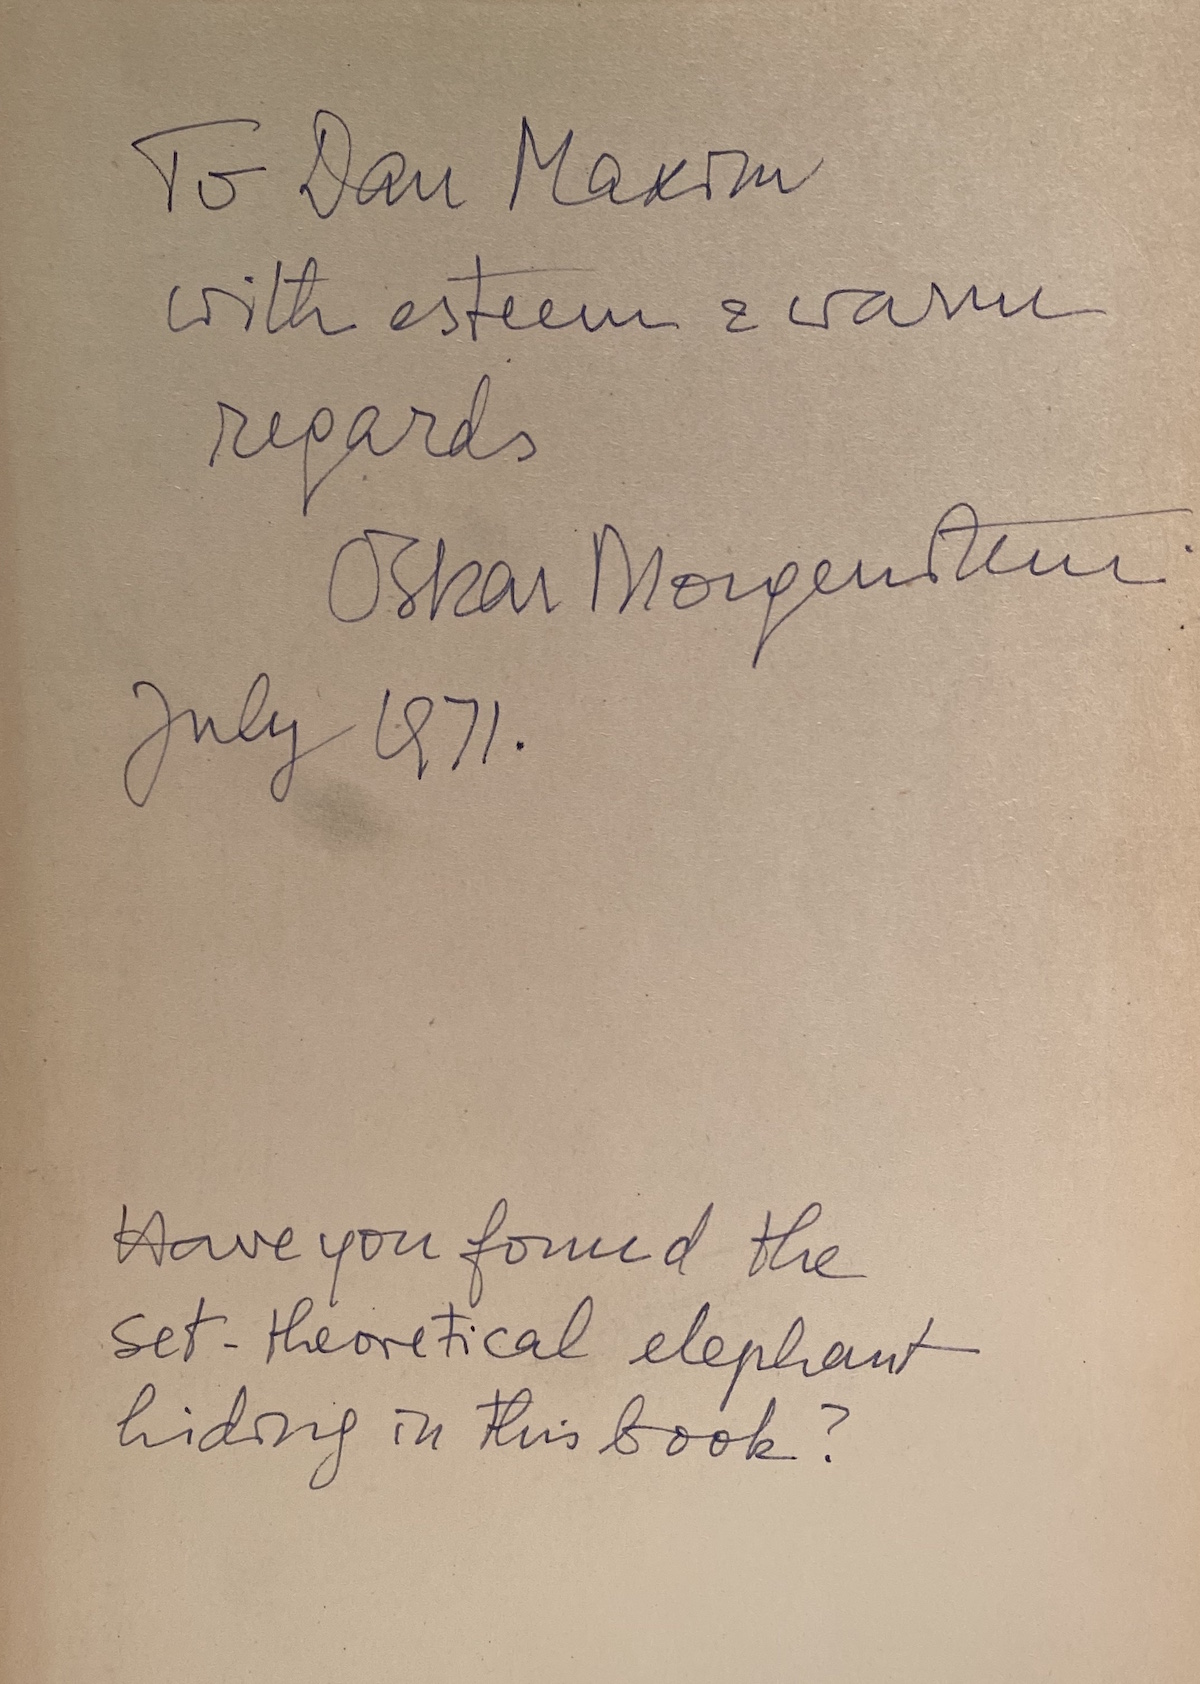 To Dan Maxim
with esteem & warm
regards
Oskar Morgenstern.
July 1971.
Have you found the
set-theoretical elephant
hiding in this book?